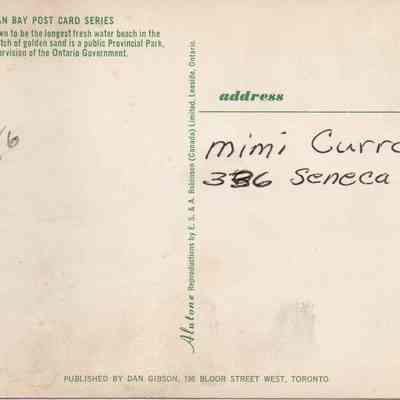 AN BAY POST CARD SERIES
wn to be the longest fresh water beach in the
tch of golden sand is a public Provincial Park,
ervision of the Ontario Government.
6
Alatone Reproductions by E. S. & A. Robinson (Canada) Limited, Leaside, Ontario.
address
mimi Curro
336 Seneca
PUBLISHED BY DAN GIBSON, 196 BLOOR STREET WEST, TORONTO